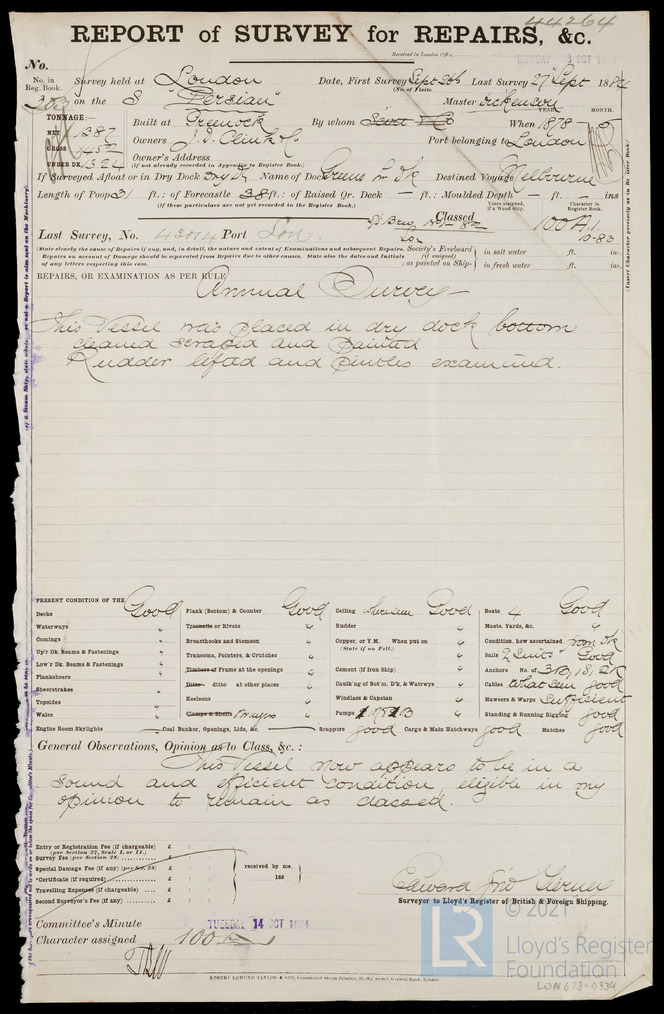 44264
REPORT of SURVEY for REPAIRS, &c.
Received in London Office,
No.
No. in Reg. Book.
Survey held at London Date, First Survey Sept 26 Last Survey 27 Sept 1884
(No. of Visits
303 on the S "Persian" Master Dickenson
TONNAGE:— Built at Greenock By whom When 1878 YEAR. MONTH.
NET 1387
GROSS
UNDER DK. 1324
Owners Port belonging to London
Owner's Address
(If not already recorded in Appendix to Register Book.)
If Surveyed Afloat or in Dry Dock Dry Dk Name of Dock Greens Destined Voyage Melbourne
Length of Poop 31 ft.: of Forecastle 38 ft.: of Raised Qr. Deck — ft.: Moulded Depth — ft. — ins
(If these particulars are not yet recorded in the Register Book.)
Years assigned, if a Wood Ship.
Character in Register Book
Classed 100A1
10-83
Last Survey, No. 43004 Port Lon
(State clearly the cause of Repairs if any, and, in detail, the nature and extent of Examinations and subsequent Repairs.
Repairs on account of Damage should be separated from Repairs due to other causes. State also the dates and Initials
of any letters respecting this case.)
Society's Freeboard (if assigned) as painted on Ship— in salt water ft. ins.
in fresh water ft. ins.
(Insert Character precisely as in the later Book.)
REPAIRS, OR EXAMINATION AS PER RULE
Annual Survey
This Vessel was placed in dry dock bottom
cleaned scraped and painted
Rudder lifted and pintles examined.
PRESENT CONDITION OF THE
Decks Good
Waterways "
Comings "
Up'r Dk. Beams & Fastenings "
Low'r Dk. Beams & Fastenings "
Planksheers "
Sheerstrakes "
Topsides "
Wales "
Engine Room Skylights —
Plank (Bottom) & Counter Good
Treenails or Rivets "
Breasthooks and Stemson "
Transoms, Pointers, & Crutches "
Timbers of Frame at the openings "
Ditto ditto at other places "
Keelsons "
Clamps & Shelfs "
Coal Bunker, Openings, Lids, &c. —
Ceiling where seen Good
Rudder "
Copper, or Y.M. When put on "
(State if on Felt.)
Cement (if Iron Ship) "
Caulk'ng of Bot'm, D'k & Watrwys "
Windlass & Capstan "
Pumps "
Scuppers good Cargo & Main Hatchways good Hatches good
Boats 4 Good
Masts, Yards, &c. "
Condition, how ascertained from Dk
Sails 2 Suits Good
Anchors No. of 3B, 1S, 2K
Cables What seen good
Hawsers & Warps Sufficient
Standing & Running Rigging good
General Observations, Opinion as to Class, &c. :
This Vessel now appears to be in a
sound and efficient condition, eligible in my
opinion to remain as classed.
Entry or Registration Fee (if chargeable) £ : :
(per Section 27, Scale I. or II.)
Survey Fee (per Section 28) £ : :
Special Damage Fee (if any) (per Sec. 28) £ : :
*Certificate (if required) £ : :
Travelling Expenses (if chargeable) £ : :
Second Surveyor's Fee (if any) £ : :
received by me,
188
Edward Jno
Surveyor to Lloyd's Register of British & Foreign Shipping.
Committee's Minute TUESDAY 14 OCT 1884
Character assigned 100
ROBERT EDMUND TAYLOR & SON,
© 2021
LR
Lloyd's Register
Foundation
LON673-0339